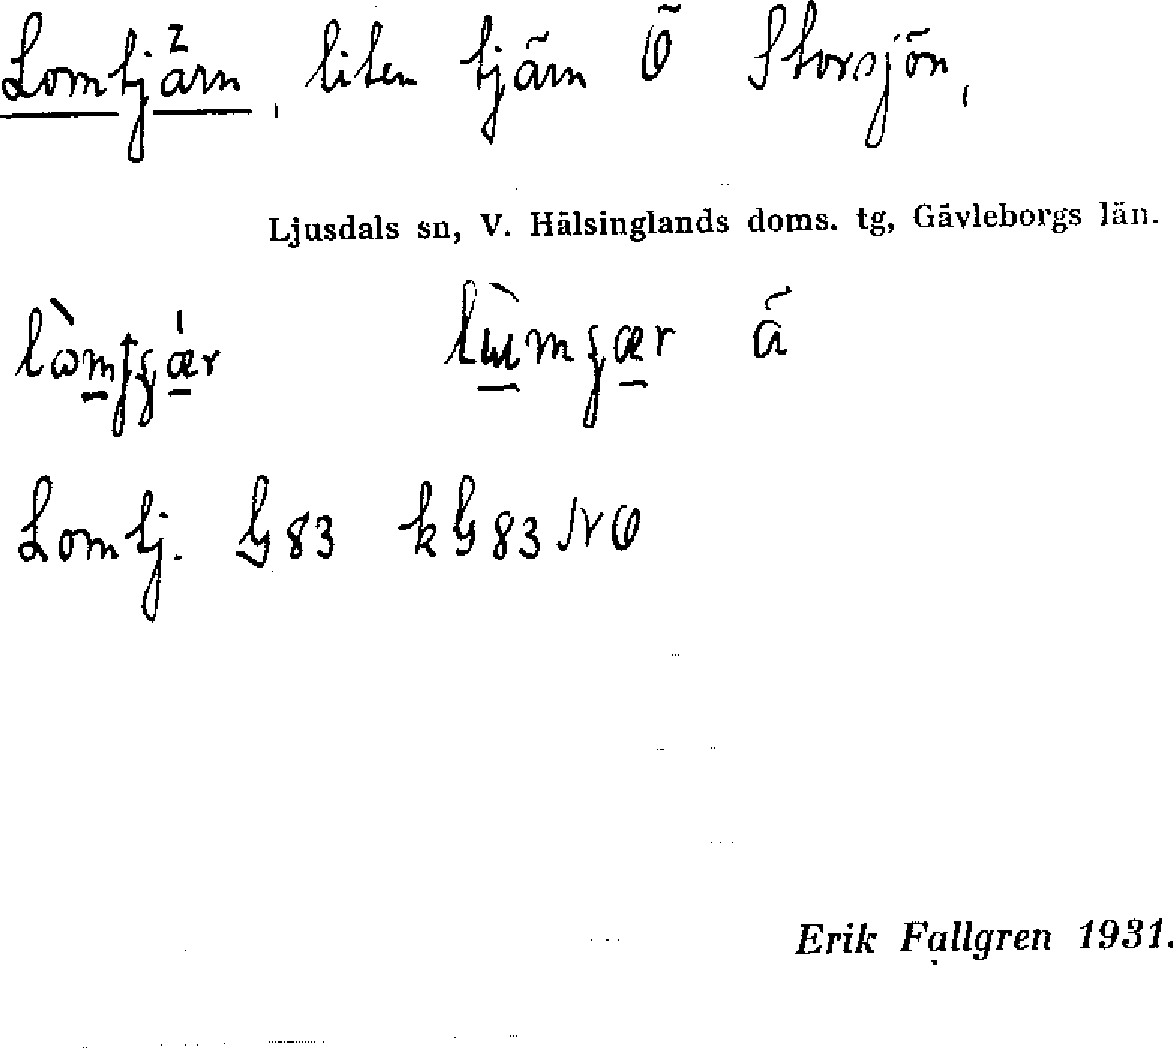 Lomtjärn, liten tjärn Ö Storsjön,
Ljusdals sn, V. Hälsinglands doms. tg, Gävleborgs län.
å
Lomtj. G83 kG83NO
Erik Fallgren 1931.